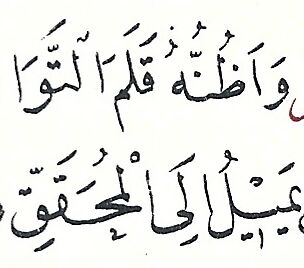 وَاَظُنُّهُ قَلَمَ التَّوَا
يَمِيْلُ اِلَى الْمُحَقَّقِ